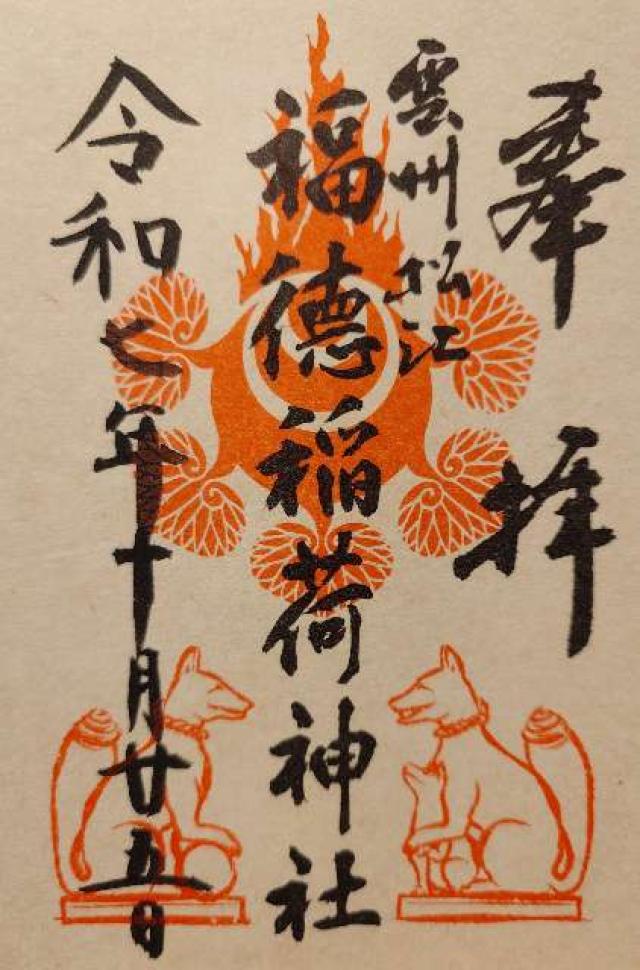 奉拝
雲州松江
福徳稲荷神社
令和七年十月廿五日